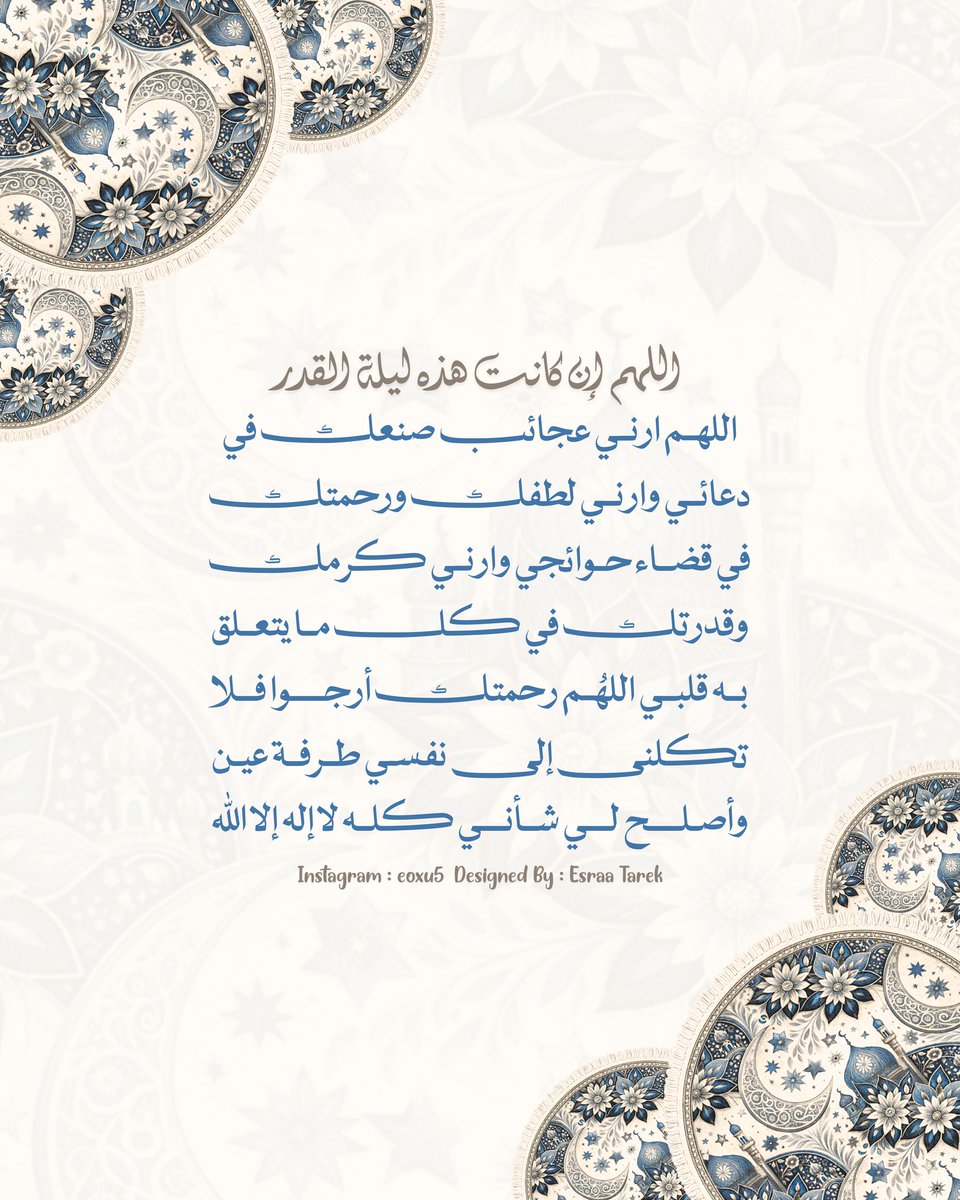 اللهم إن كانت هذه ليلة القدر
اللهم ارني عجائب صنعك في
دعائي وارني لطفك ورحمتك
في قضاء حوائجي وارني كرمك
وقدرتك في كل ما يتعلق
به قلبي اللهُم رحمتك أرجوا فلا
تكلنى إلى نفسي طرفة عين
وأصلح لي شأني كله لا إله إلا الله
Instagram : eoxu5 Designed By : Esraa Tarek